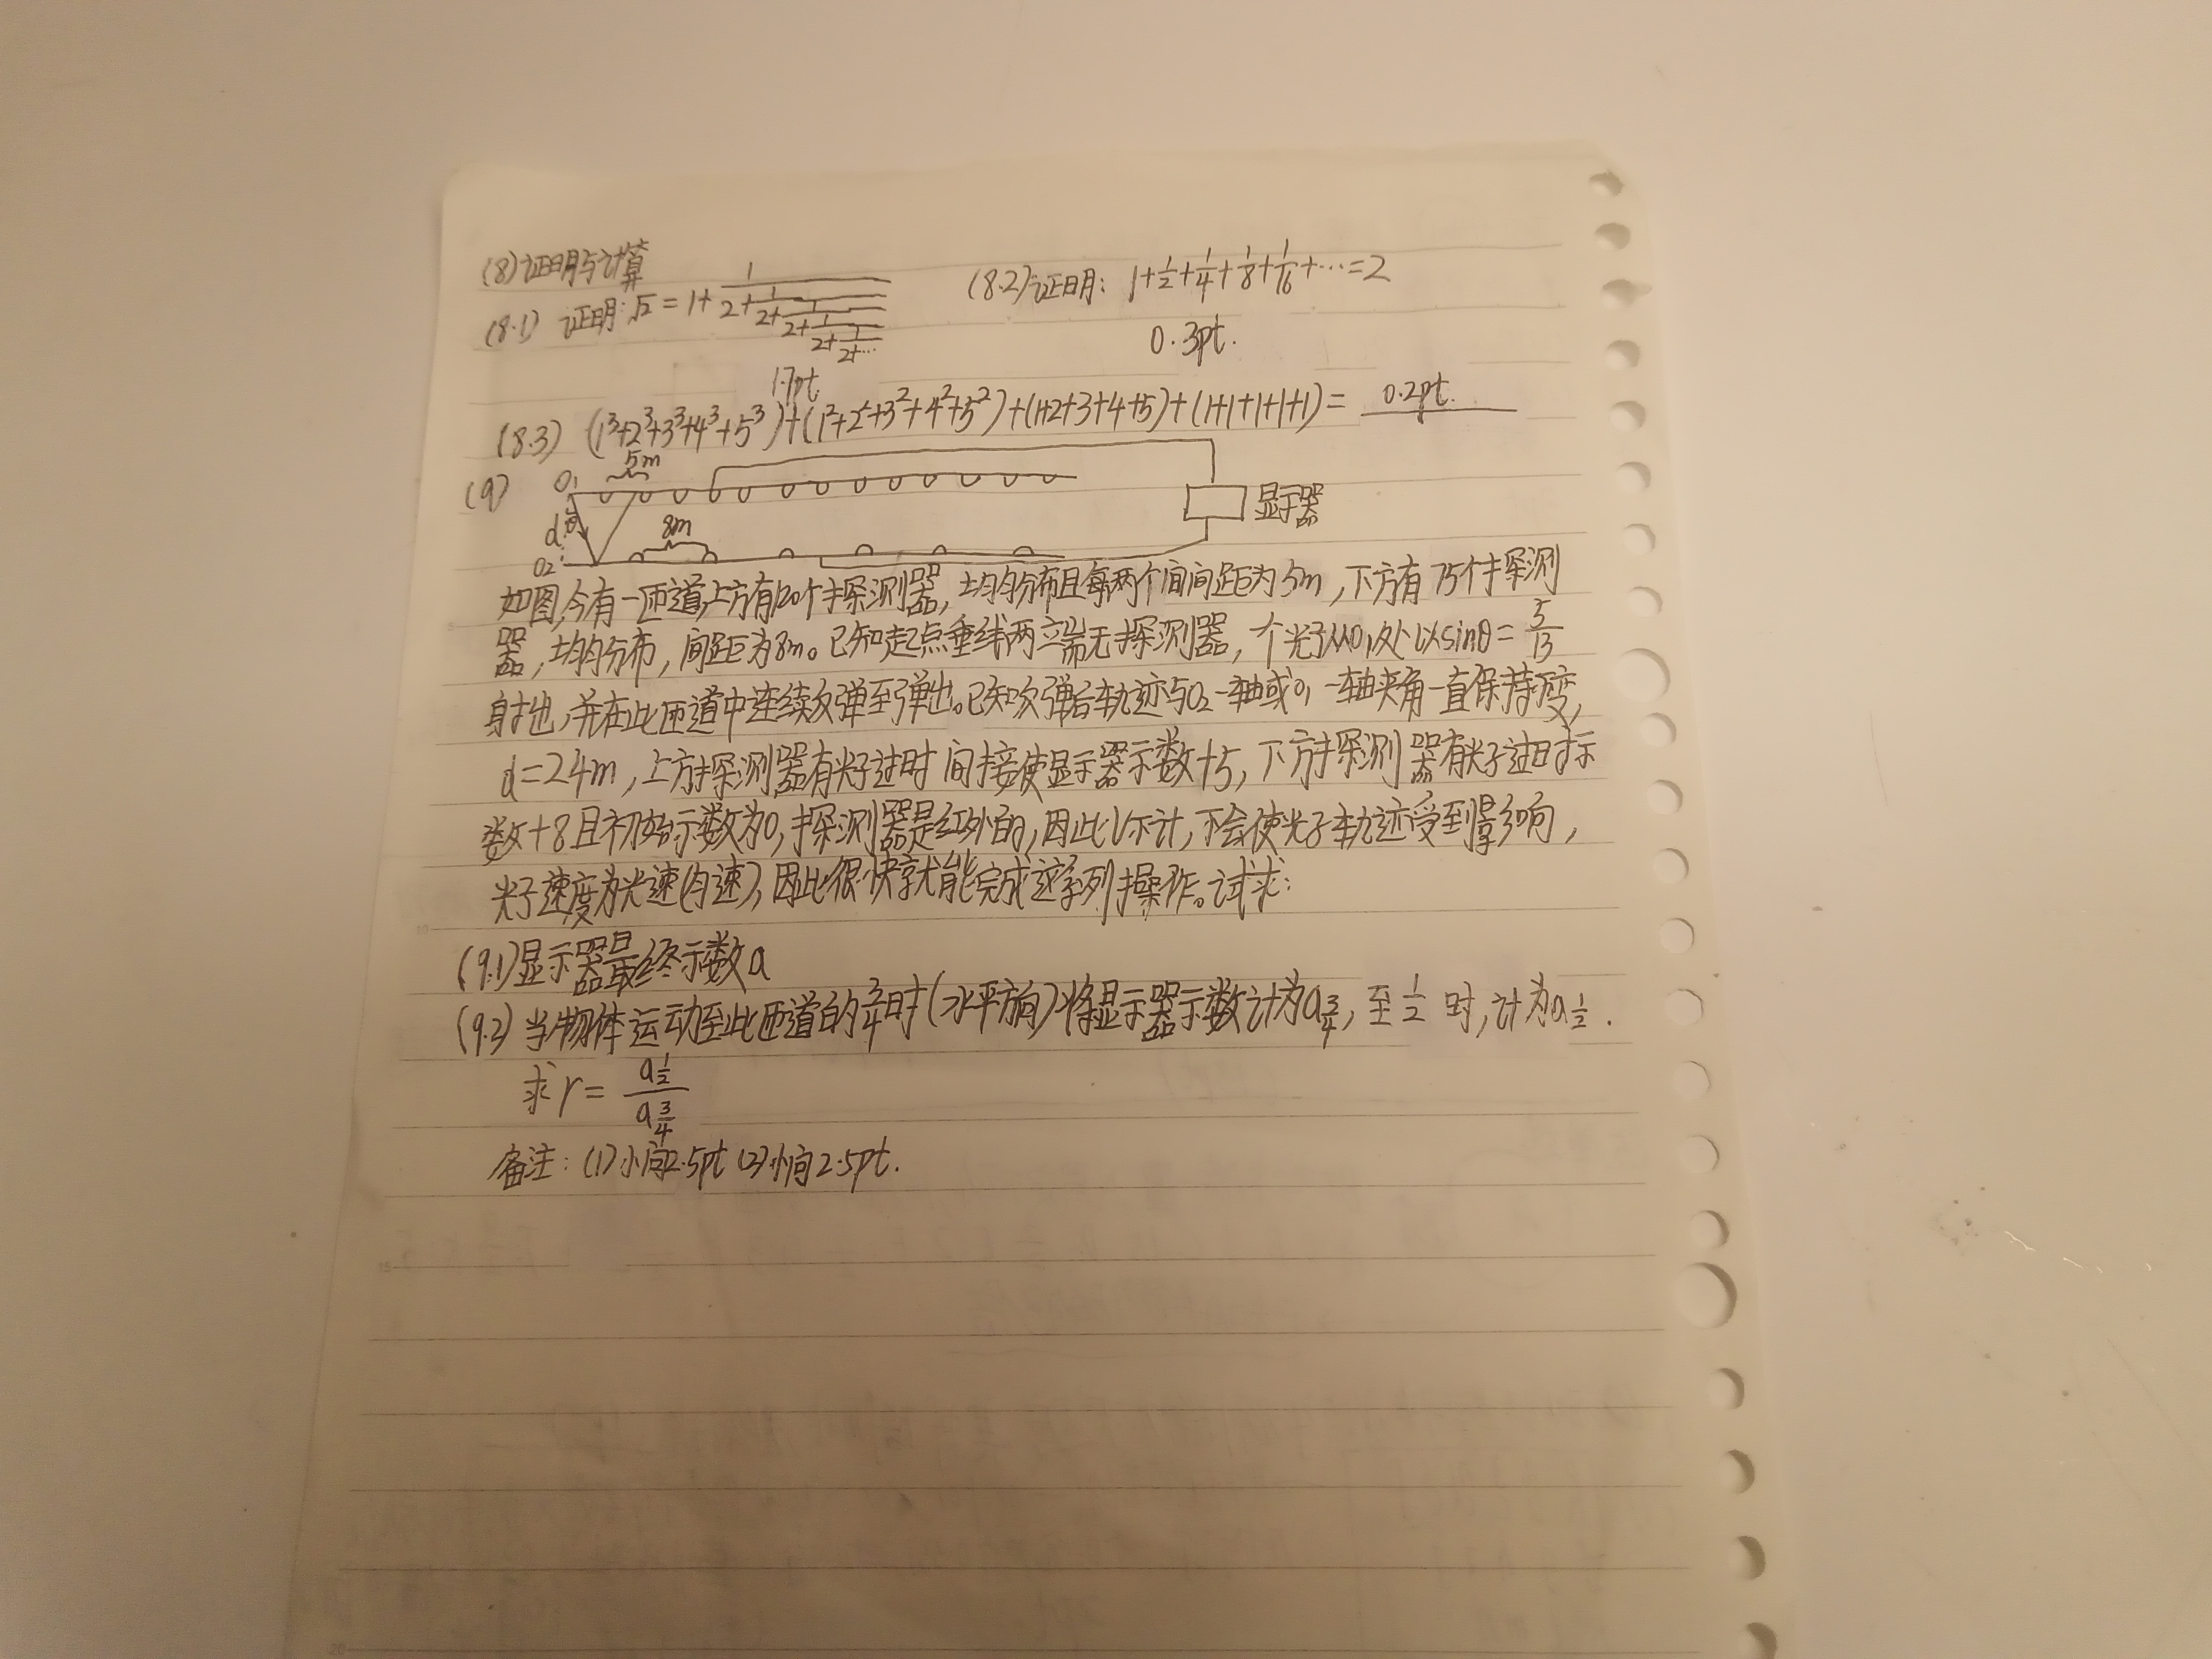 (8)证明与计算
(8.1) 证明:√2 = 1+1/(2+1/(2+1/(2+1/(2+1/(2+⋯)))))
1.7pt
(8.2)证明: 1+1/2+1/4+1/8+1/16+⋯=2
0.3pt.
(8.3) (1³+2³+3³+4³+5³)+(1²+2²+3²+4²+5²)+(1+2+3+4+5)+(1+1+1+1+1)= 0.2pt.
(9) O₁ 5m
d θ 8m 显示器
O₂
如图,今有一匝道,上方有120个探测器,均匀分布且每两个间间距为5m,下方有75个探测
器,均匀分布,间距为8m。已知起点垂线两端无探测器,一个光子从O₁处以sinθ=5/13
射出,并在此匝道中连续反弹至弹出。已知次弹后轨迹与O₂一轴或O₁一轴夹角一直保持不变,
d=24m,上方探测器有光子过时间接使显示器示数+5,下方探测器有光子过时示
数+8且初始示数为0,探测器是红外的,因此V不计,不会使光子轨迹受到影响,
光子速度为光速(匀速),因此很快就能完成这系列操作。试求:
(9.1)显示器最终示数a
(9.2)当物体运动至此匝道的3/4时(水平方向)将显示器示数计为a3/4,至1/2时,计为a1/2.
求r= a1/2 / a3/4
备注:(1)小问2.5pt (2)小问2.5pt.